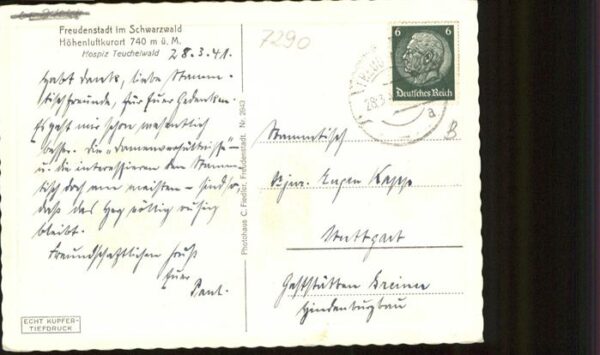 Freudenstadt im Schwarzwald
Höhenluftkurort 740 m ü. M.
Hospiz Teuchelwald
28.3.41.
Habt Dank, liebe Stamm-
tischfreunde, für Euer Gedenken.
Es geht mir schon wesentlich
besser. Die „Damenverhältnisse" –
u. die interessieren den Stamm-
tisch doch am meisten – sind so,
daß das Herz völlig ruhig
bleibt.
Freundschaftlichen Gruß
Euer
ECHT KUPFER-
TIEFDRUCK
Photohaus C. Fiedler, Freudenstadt. Nr. 2643
7290
6 6
Deutsches Reich
28.3.
a
B
Stammtisch
Eugen
Stuttgart
Gaststätten Greiner
Hindenburgbau